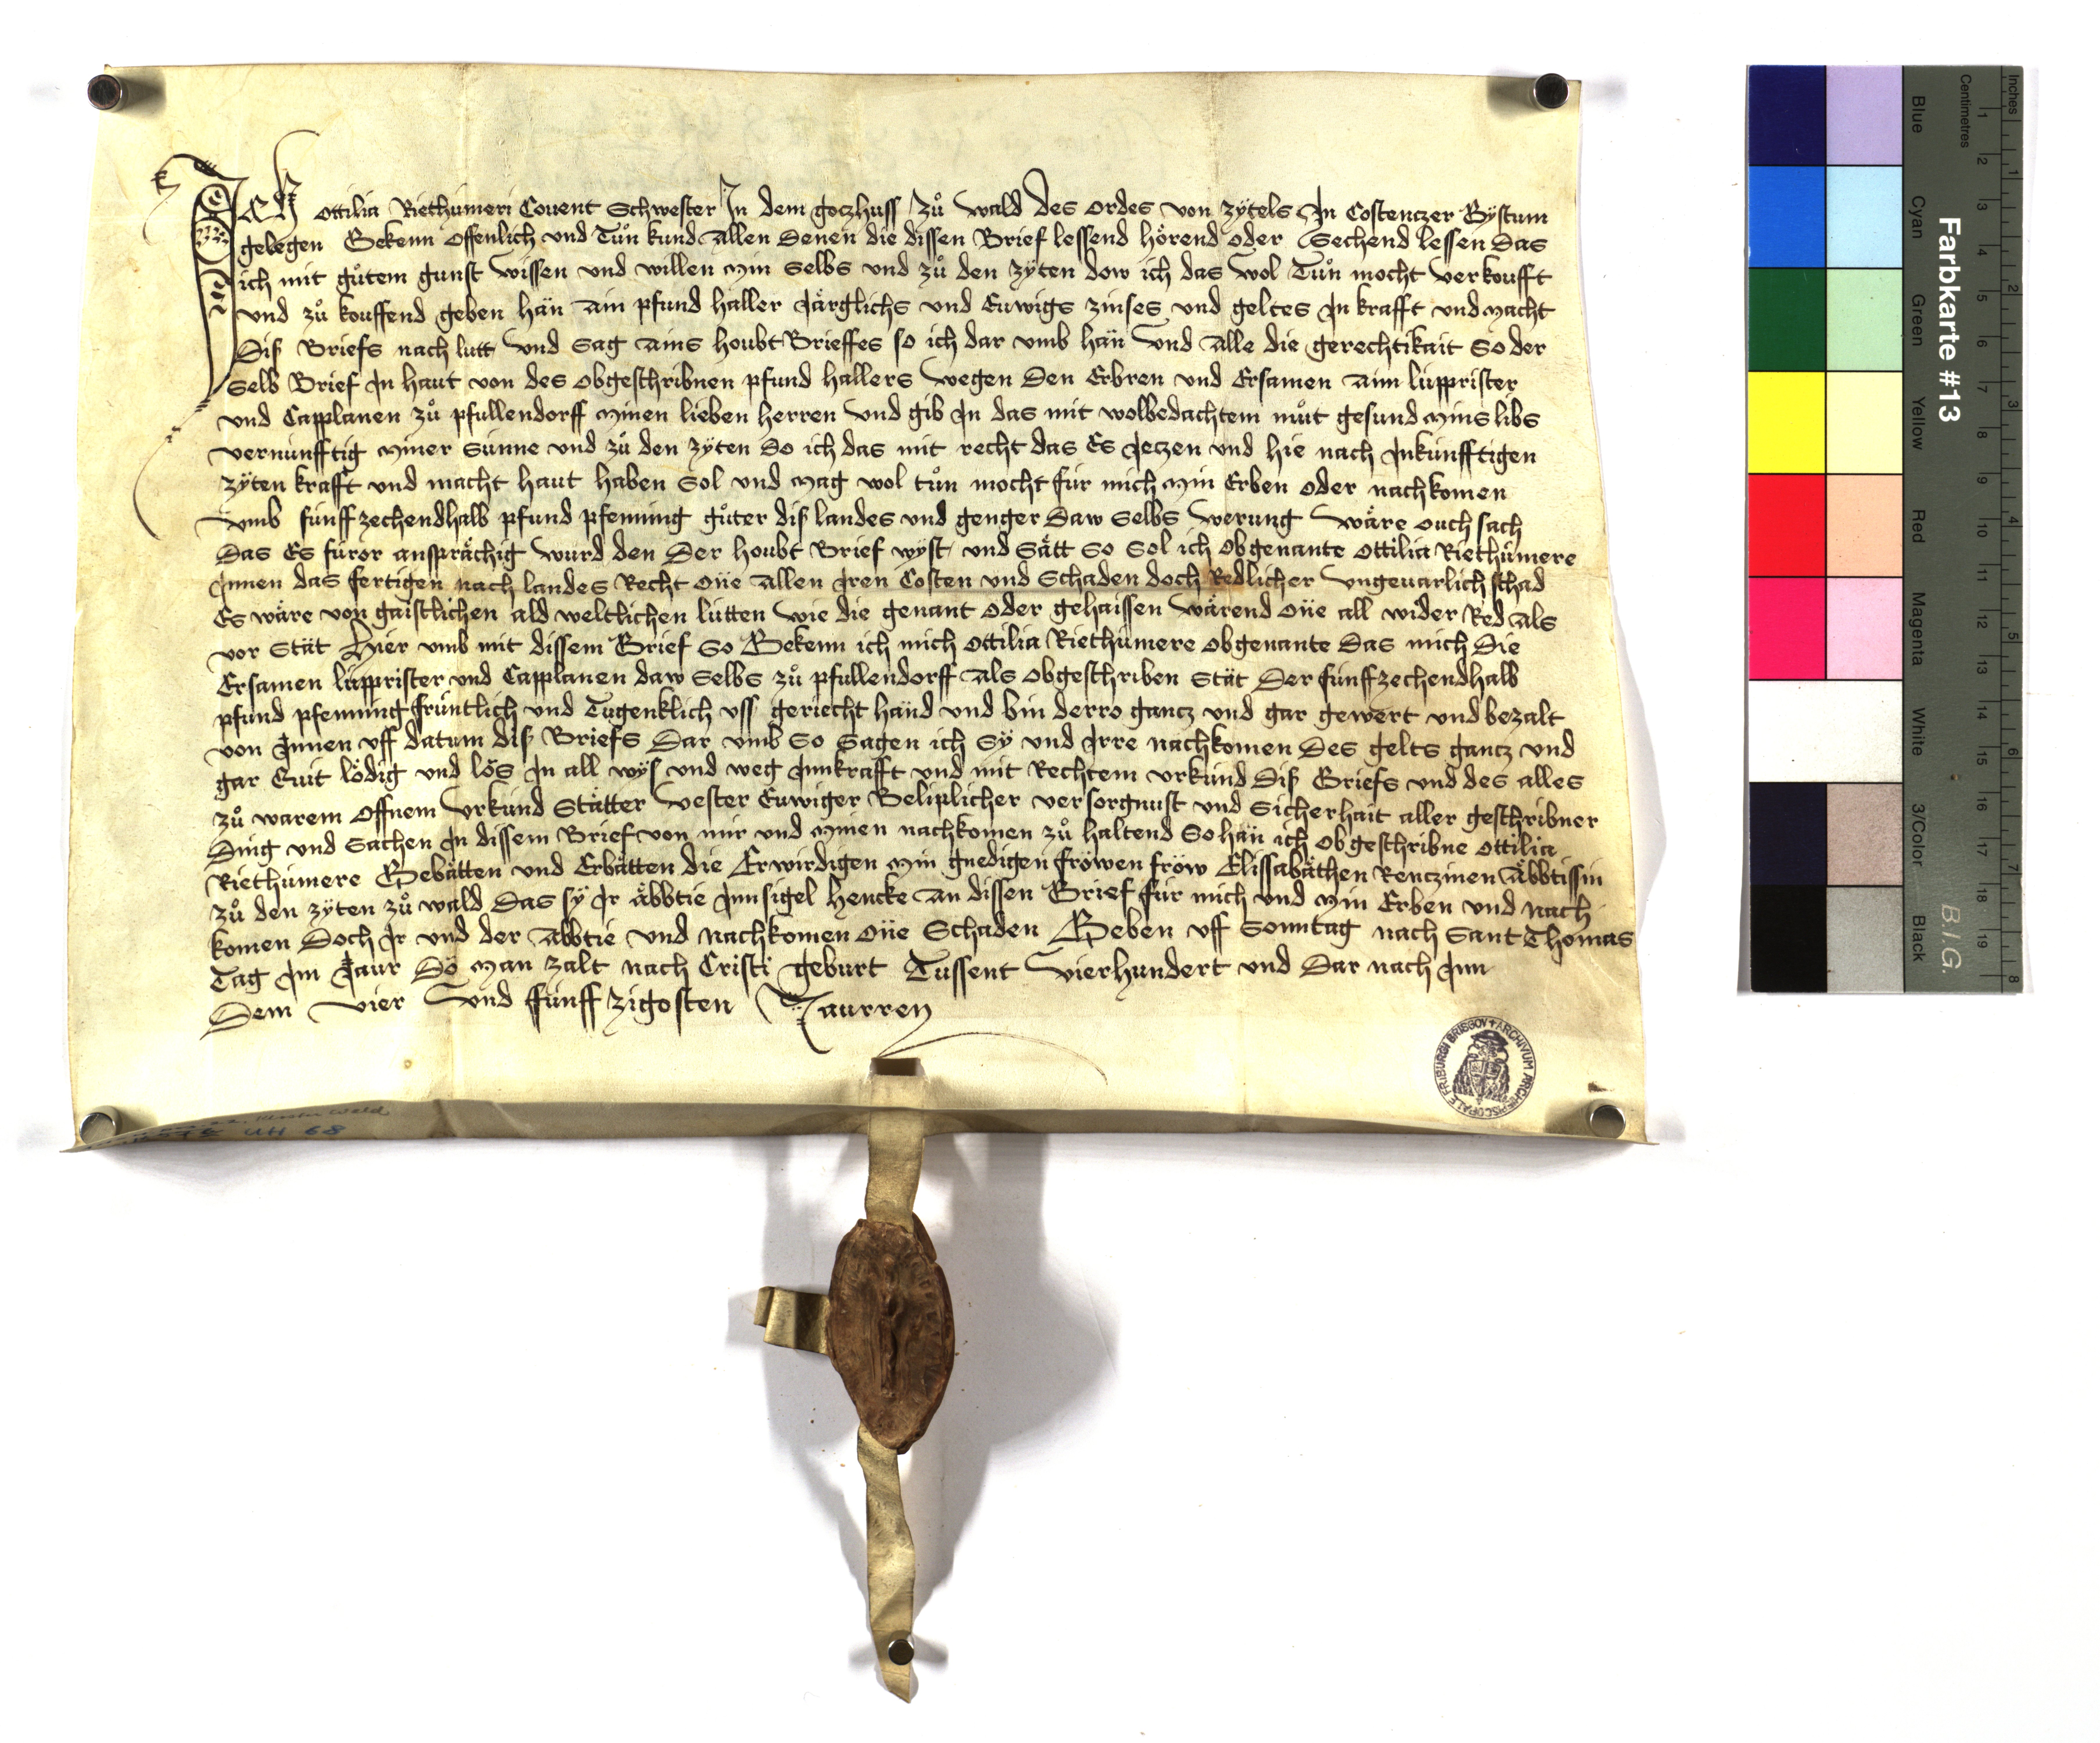 Ich Ottilia Riethúmeri Couent Schwester In dem goczhuss zů Wald des ordes von zÿtels In Costenczer Bÿstum
gelegen Bekenn offenlich vnd Tůn kund allen denen die dissen Brief lessend hörend oder Sechend lessen das
ich mit gůtem gunst wissen vnd willen min selbs vnd zů den zÿten dow ich das wol Tůn mocht verkoufft
vnd zů kouffend geben hän ain pfund haller Järglichs vnd Euwigs zinses vnd geltes In krafft vnd macht
Diß Briefs nach lutt vnd sag ains houbt Brieffes so ich dar vmb hän vnd alle die gerechtikait So der
Selb Brief In haut von des obgeschribnen pfund hallers wegen Den Erbren vnd Ersamen aim lúpprister
vnd Capplanen zů pfullendorff minen lieben herren vnd gib In das mit wolbedachtem můt gesund mins libs
vernúnfftig miner Sunne vnd zů den zÿten So ich das mit recht das Es Jeczen vnd hie nach Inkúnfftigen
zÿten krafft vnd macht haut haben Sol vnd mag wol tůn mocht fúr mich min Erben oder nachkomen
vmb fúnffzechendhalb pfund pfenning gůter diß landes vnd genger Daw Selbs werung wäre ouch sach
Das Es fúror ansprächig wurd den Der houbt Brief wÿst vnd Sätt So Sol ich obgenante Ottilia Riethúmere
Innen das fertigen nach landes Recht one allen Iren Costen vnd Schaden doch Redlicher vngeuarlich schad
Es wäre von gaistlichen ald weltlichen lútten wie die genant oder gehaissen wärend one all wider Red als
vor Stät Hier vmb mit dissem Brief So Bekenn ich mich Ottilia Riethúmere obgenante Das mich Die
Ersamen lúpprister vnd Capplanen daw Selbs zů pfullendorff als obgeschriben Stät Der fúnffzechendhalb
pfund pfenning frúntlich vnd Tugenklich vss gericht händ vnd bin derro gancz vnd gar gewert vnd bezalt
von Innen vff datum diß Briefs Dar vmb So Sagen ich Sÿ vnd Irre nachkomen Des gelts gancz vnd
gar Quit lödig vnd lös In all wÿs vnd weg Inn krafft vnd mit Rechtem vrkúnd Diß Briefs vnd des alles
zů warem offnem vrkúnd Stätter vester Euwiger Beliplicher versorgnust vnd Sicherhait aller geschribner
Ding vnd Sachen In dissem Brief von mir vnd minen nachkomen zů haltend So hän ich obgeschribne Ottilia
Riethúmere Gebätten vnd Erbätten die Erwirdigen min gnedigen fröwen fröw Elissabäthen Renczinen Äbbtissin
zů den zÿten zů wald Das sÿ Ir äbbtie Innsigel Hencke an dissen Brief fúr mich vnd min Erben vnd nach
komen Doch Ir vnd der äbbtie vnd nachkomen one Schaden Geben vff Sonntag nach Sant Thomas
Tag Im Jaur Dö man zalt nach Cristi geburt Tussent vierhundert vnd Dar nach Inn
Dem vier vnd fúnffzigosten Jaurren
FRIBURGI BRISGOV + ARCHIVUM ARCHIEPISCOPALE
Kloster Wald
UH 68
Farbkarte #13
B.I.G.
Inches
1 2 3 4 5 6 7 8
Centimetres
1 2 3 4 5 6 7 8 9 10 11 12 13 14 15 16 17 18 19
Blue
Cyan
Green
Yellow
Red
Magenta
White
3/Color
Black